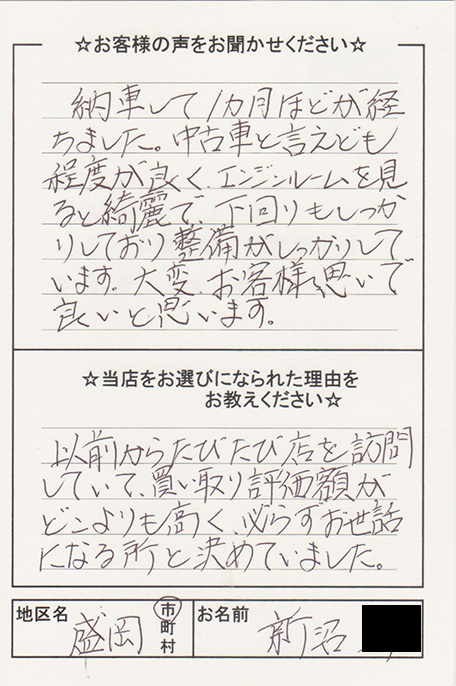 ☆お客様の声をお聞かせください☆
納車して1カ月ほどが経
ちました。中古車と言えども
程度が良く、エンジンルームを見
ると綺麗で、下回りもしっか
りしており整備がしっかりして
います。大変、お客様思いで
良いと思います。
☆当店をお選びになられた理由を
お教えください☆
以前からたびたび店を訪問
していて、買い取り評価額が
どこよりも高く、必らずお世話
になる所と決めていました。
地区名 盛岡 市町村 お名前 新沼